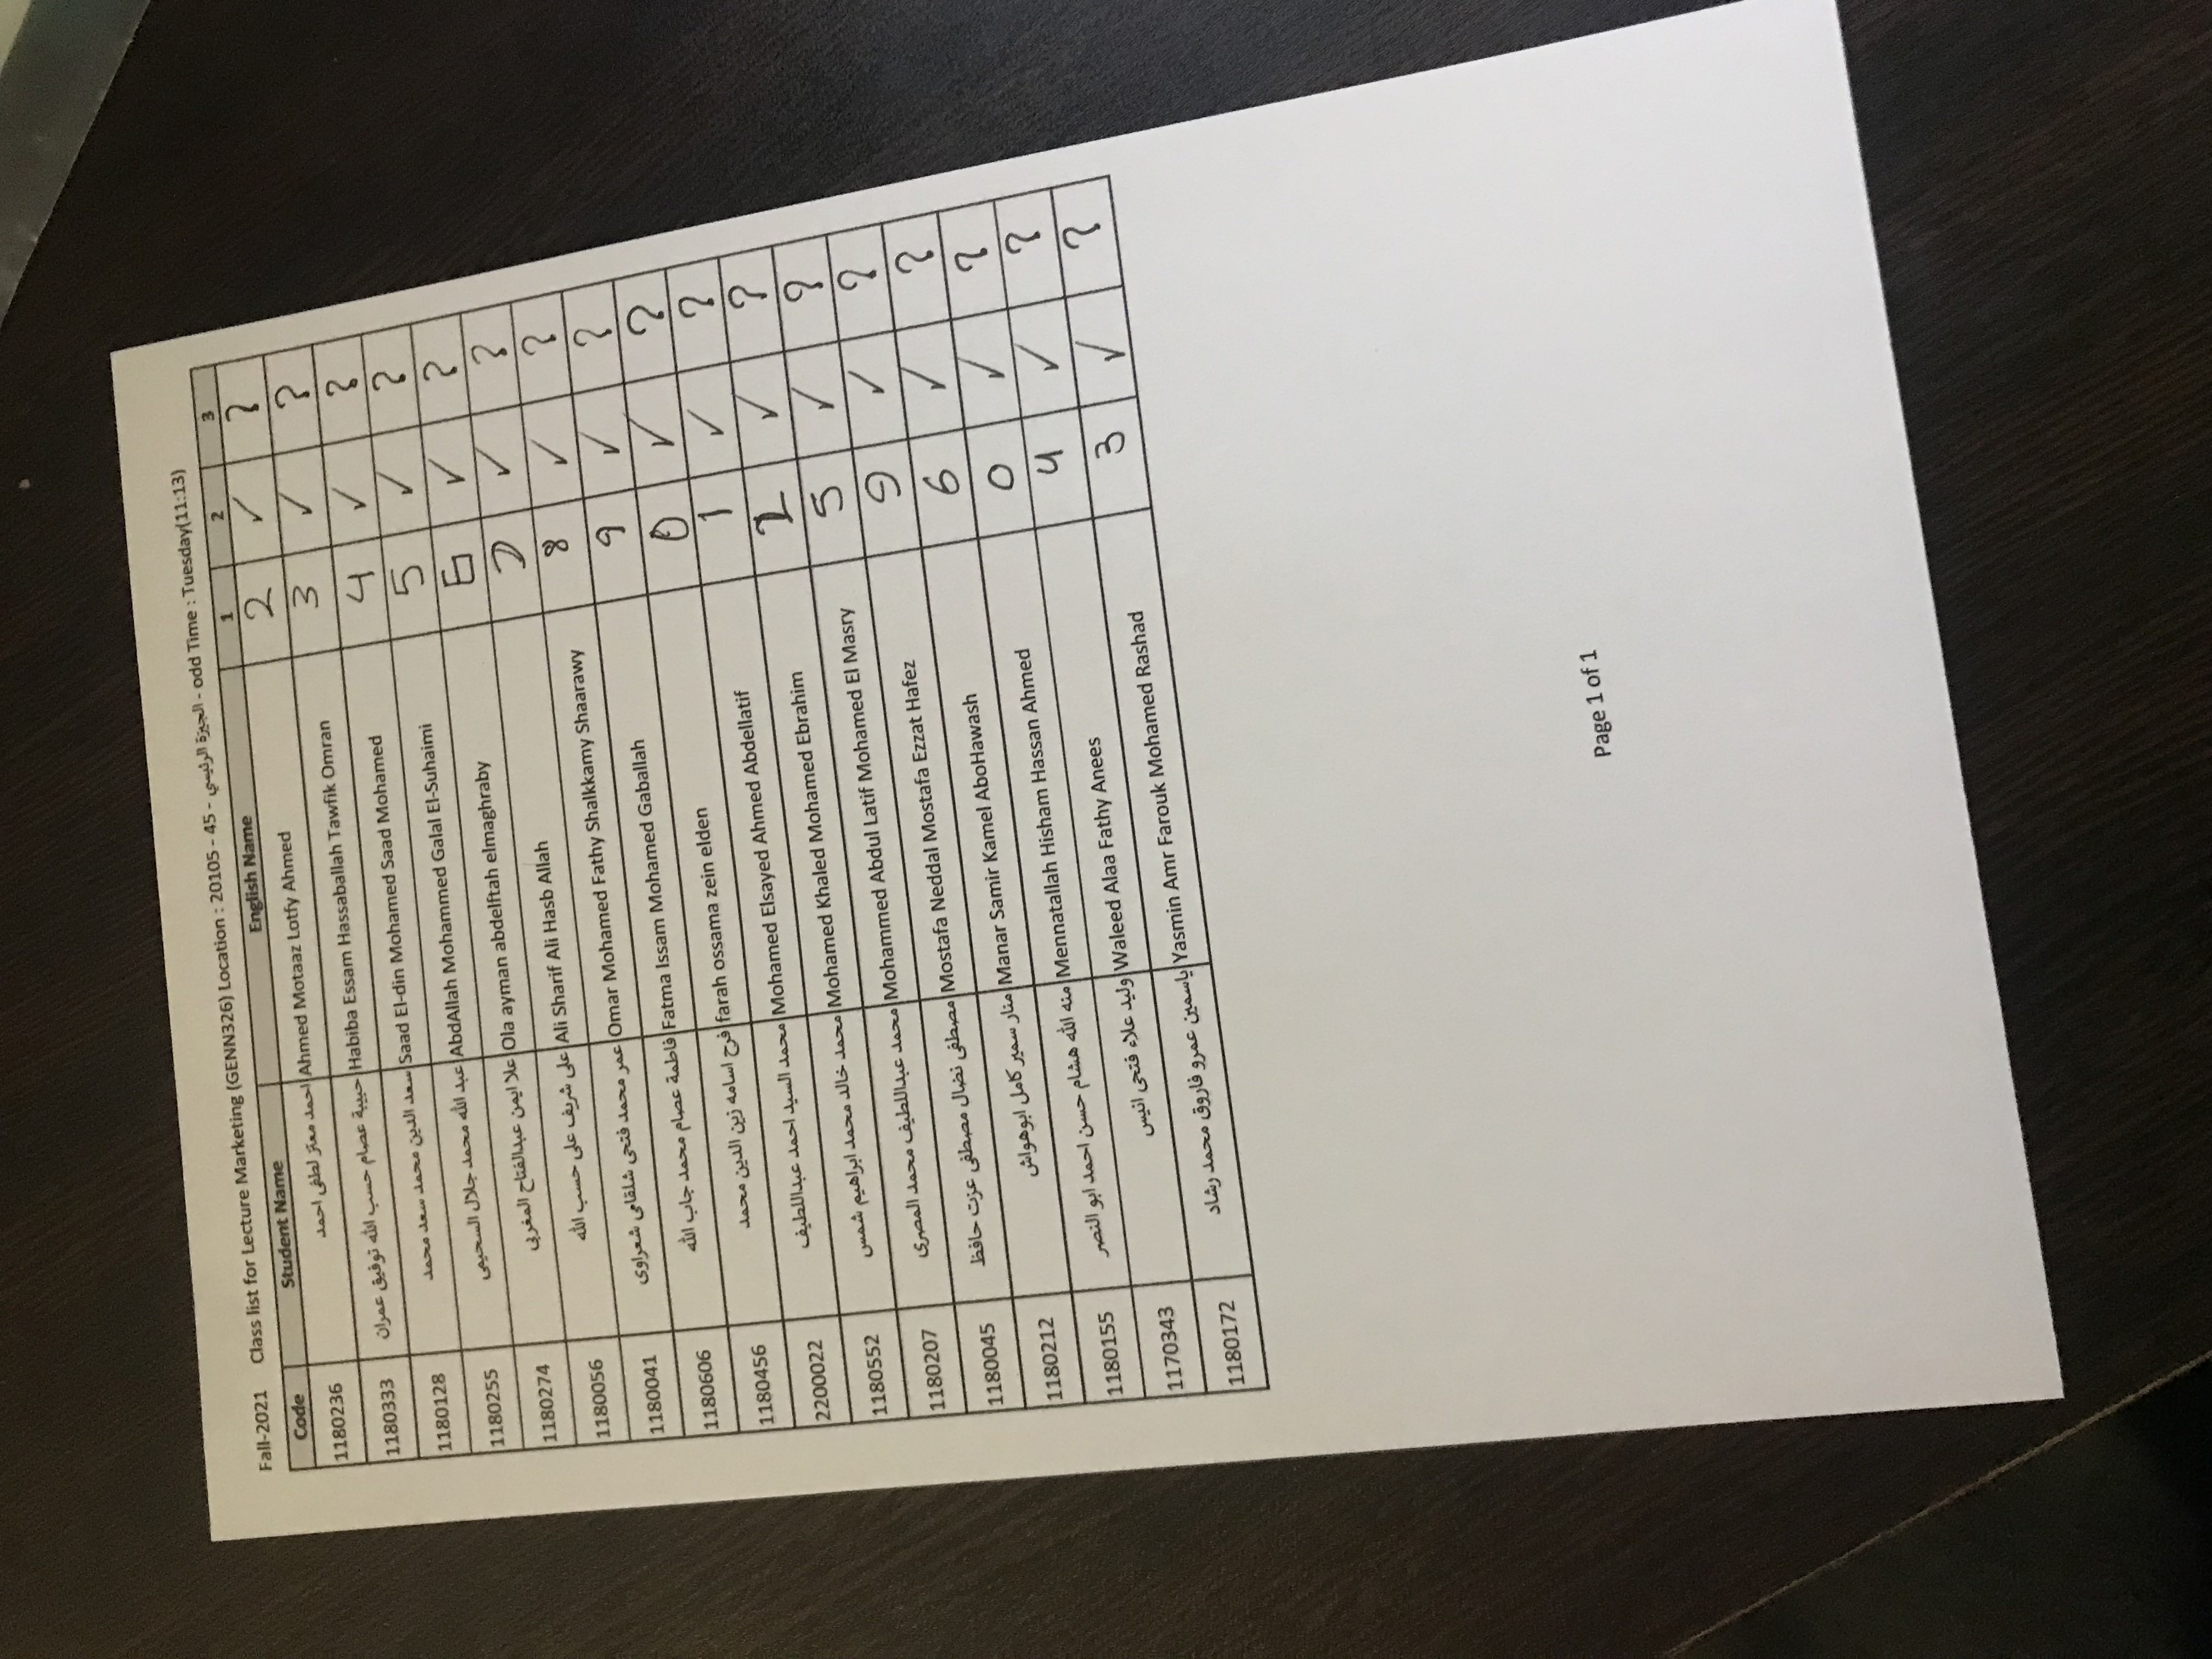 Fall-2021 Class list for Lecture Marketing (GENN326) Location : 20105 - 45 - الجيزة الرئيسي - odd Time : Tuesday(11:13)
Code Student Name English Name 1 2 3
1180236 احمد معتز لطفى احمد Ahmed Motaaz Lotfy Ahmed 2 ✓ ?
1180333 حبيبة عصام حسب الله توفيق عمران Habiba Essam Hassaballah Tawfik Omran 3 ✓ ?
1180128 سعد الدين محمد سعد محمد Saad El-din Mohamed Saad Mohamed 4 ✓ ?
1180255 عبد الله محمد جلال السحيمى AbdAllah Mohammed Galal El-Suhaimi 5 ✓ ?
1180274 علا ايمن عبدالفتاح المغربى Ola ayman abdelftah elmaghraby 6 ✓ ?
1180056 على شريف على حسب الله Ali Sharif Ali Hasb Allah 7 ✓ ?
1180041 عمر محمد فتحى شلقامى شعراوى Omar Mohamed Fathy Shalkkamy Shaarawy 8 ✓ ?
1180606 فاطمة عصام محمد جاب الله Fatma Issam Mohamed Gaballah 9 ✓ ?
1180456 فرح اسامه زين الدين محمد farah ossama zein elden 0 ✓ ?
2200022 محمد السيد احمد عبداللطيف Mohamed Elsayed Ahmed Abdellatif 1 ✓ ?
1180552 محمد خالد محمد ابراهيم شمس Mohamed Khaled Mohamed Ebrahim ✓ ?
1180207 محمد عبداللطيف محمد المصرى Mohammed Abdul Latif Mohamed El Masry 5 ✓ ?
1180045 مصطفى نضال مصطفى عزت حافظ Mostafa Neddal Mostafa Ezzat Hafez 9 ✓ ?
1180212 منار سمير كامل ابوهواش Manar Samir Kamel AboHawash 6 ✓ ?
1180155 منه الله هشام حسن احمد ابو النصر Mennatallah Hisham Hassan Ahmed 0 ✓ ?
1170343 وليد علاء فتحى انيس Waleed Alaa Fathy Anees 4 ✓ ?
1180172 ياسمين عمرو فاروق محمد رشاد Yasmin Amr Farouk Mohamed Rashad 3 ✓ ?
Page 1 of 1